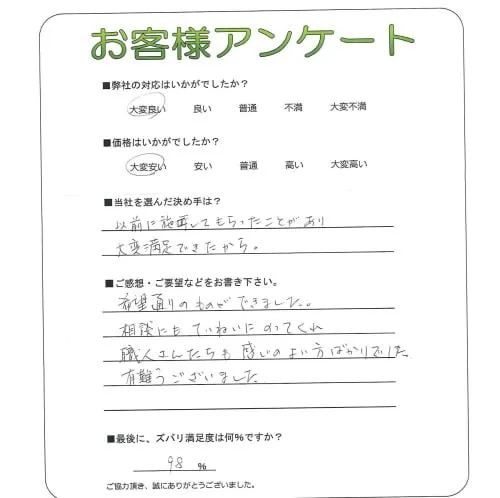 お客様アンケート
■弊社の対応はいかがでしたか？
大変良い 良い 普通 不満 大変不満
■価格はいかがでしたか？
大変安い 安い 普通 高い 大変高い
■当社を選んだ決め手は？
以前に施工してもらったことがあり
大変満足できたから。
■ご感想・ご要望などをお書き下さい。
希望通りのものができました。
相談にもていねいにのってくれ
職人さんたちも感じのよい方ばかりでした
有難うございました
■最後に、ズバリ満足度は何%ですか？
98 %
ご協力頂き、誠にありがとうございました。